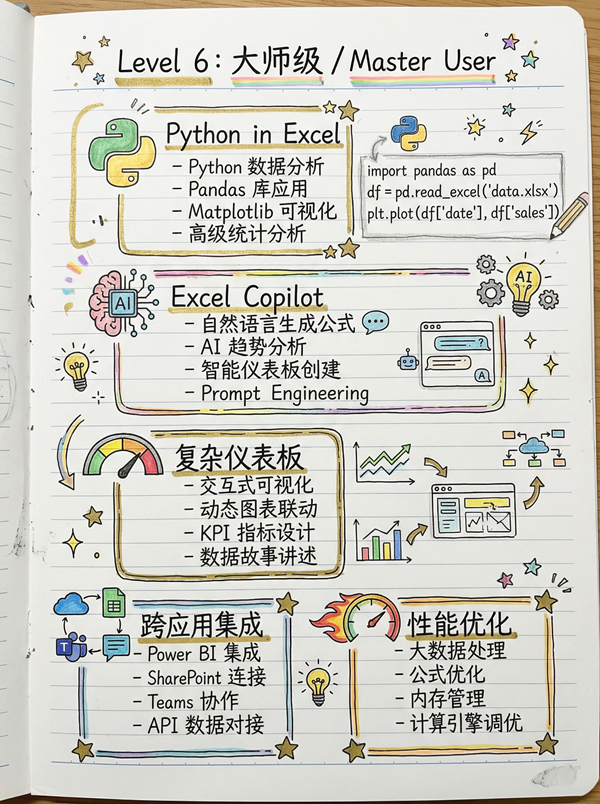 Level 6: 大师级 / Master User
Python in Excel
- Python 数据分析
- Pandas 库应用
- Matplotlib 可视化
- 高级统计分析
import pandas as pd
df = pd.read_excel('data.xlsx')
plt.plot(df['date'], df['sales'])
AI
Excel Copilot
- 自然语言生成公式
- AI 趋势分析
- 智能仪表板创建
- Prompt Engineering
AI
?
A
复杂仪表板
- 交互式可视化
- 动态图表联动
- KPI 指标设计
- 数据故事讲述
跨应用集成
- Power BI 集成
- SharePoint 连接
- Teams 协作
- API 数据对接
T
性能优化
- 大数据处理
- 公式优化
- 内存管理
- 计算引擎调优